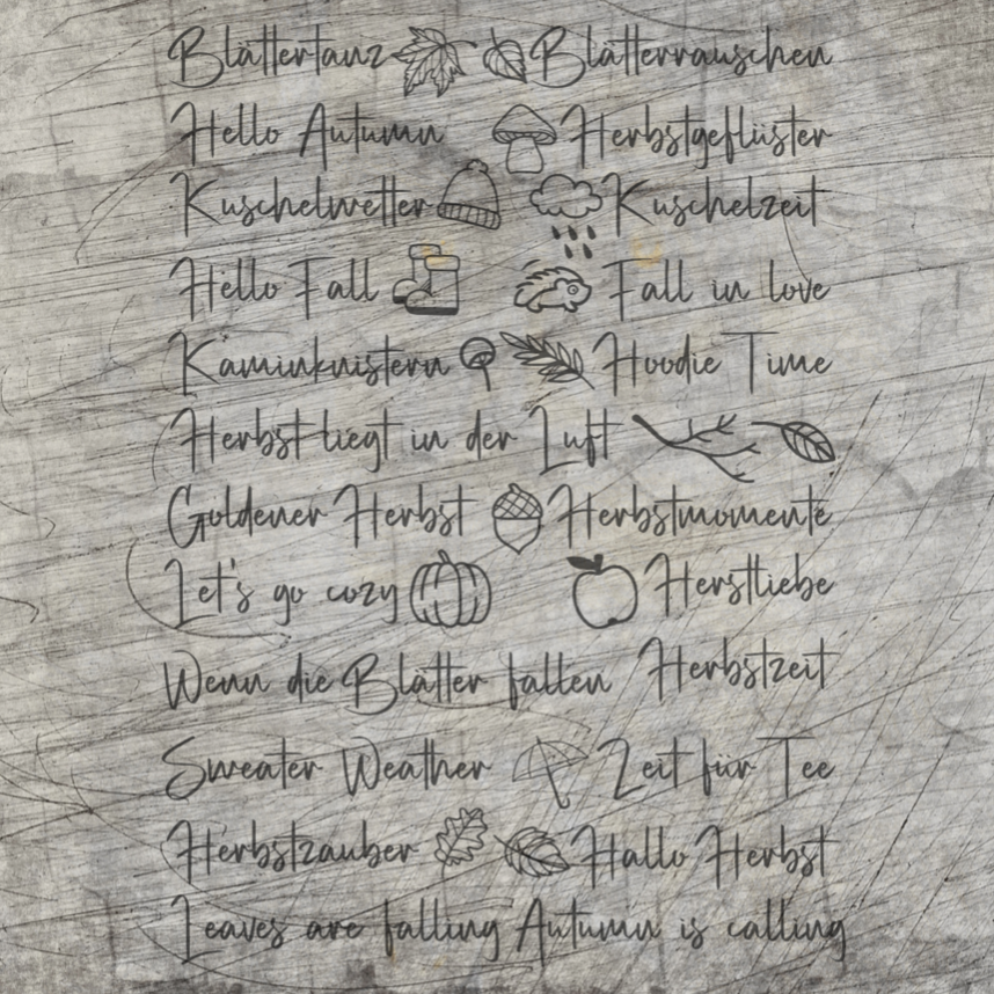 Blättertanz Blätterrauschen
Hello Autumn Herbstgeflüster
Kuschelwetter Kuschelzeit
Hello Fall Fall in love
Kaminknistern Hoodie Time
Herbst liegt in der Luft
Goldener Herbst Herbstmomente
Let's go cozy Herstliebe
Wenn die Blätter fallen Herbstzeit
Sweater Weather Zeit für Tee
Herbstzauber Hallo Herbst
Leaves are falling Autumn is calling